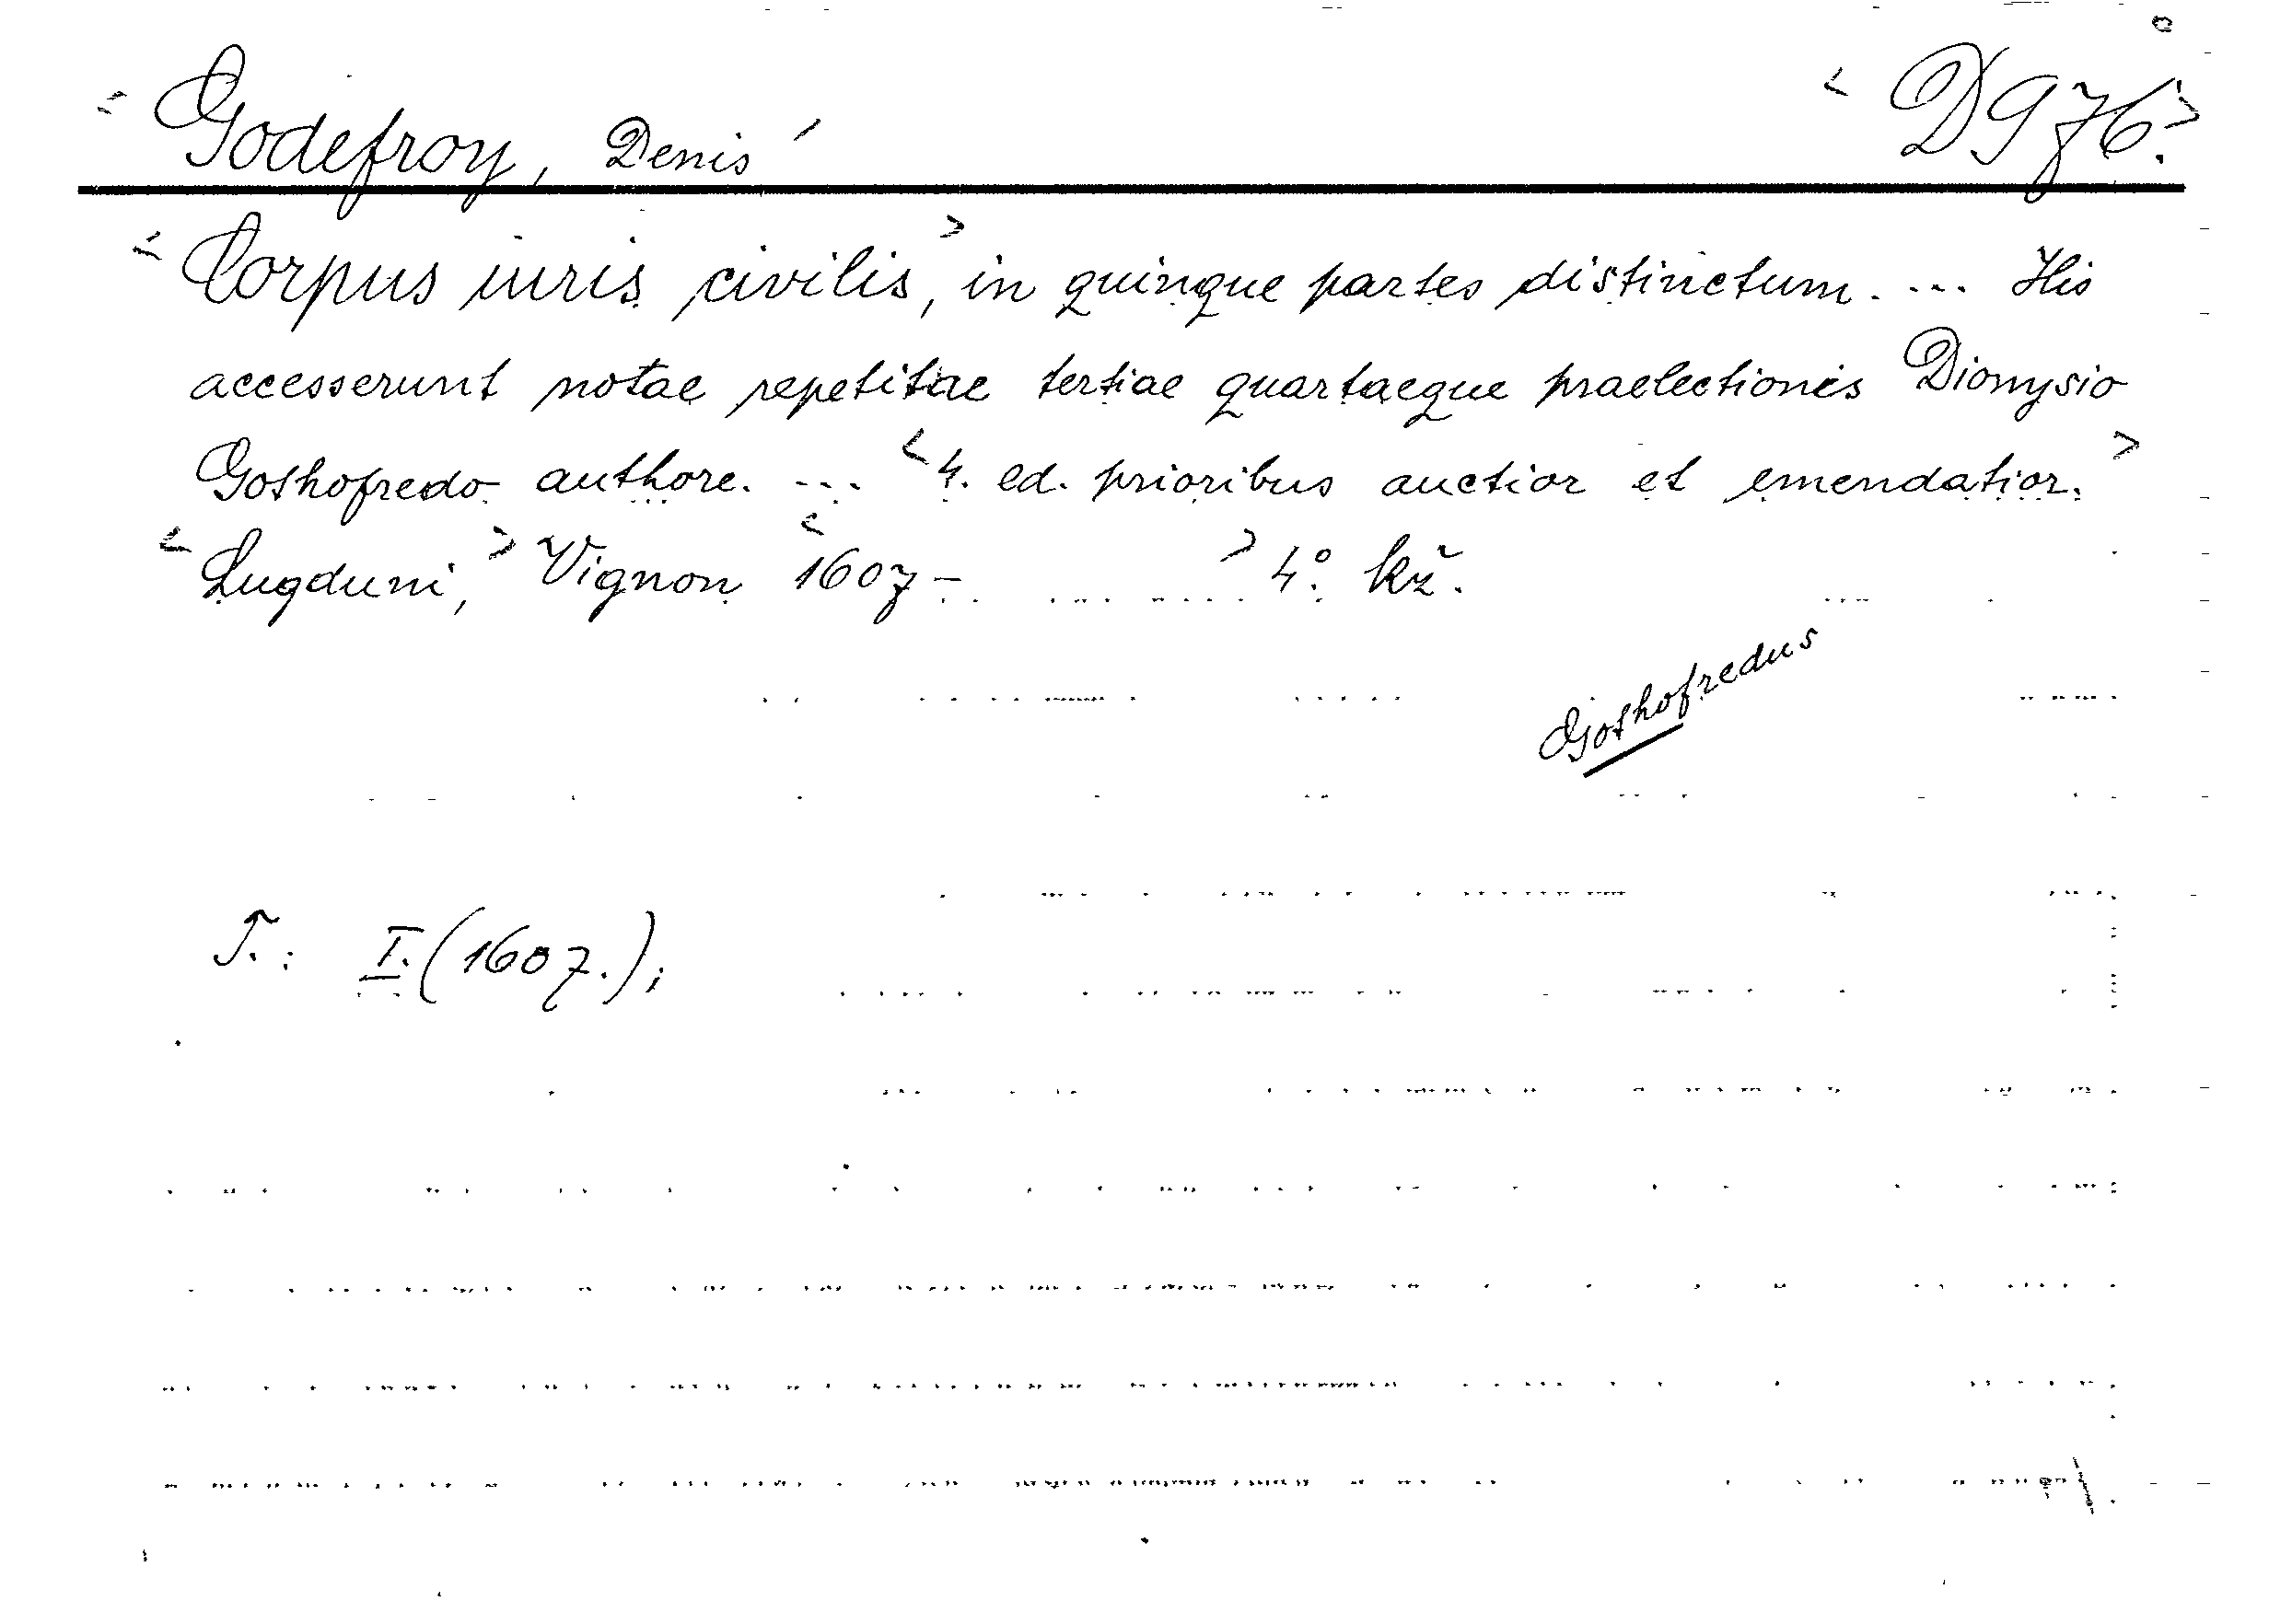 < Godefroy, Denis > < D976. >
< Corpus iuris civilis >, in quinque partes distinctum. ... His
accesserunt notae repetitae tertiae quartaeque praelectionis Dionysio
Gothofredo authore. ... < 4. ed. prioribus auctior et emendatior. >
< Lugduni, > Vignon < 1607- > 4° kž.
Gothofredus
T.: I. (1607.);